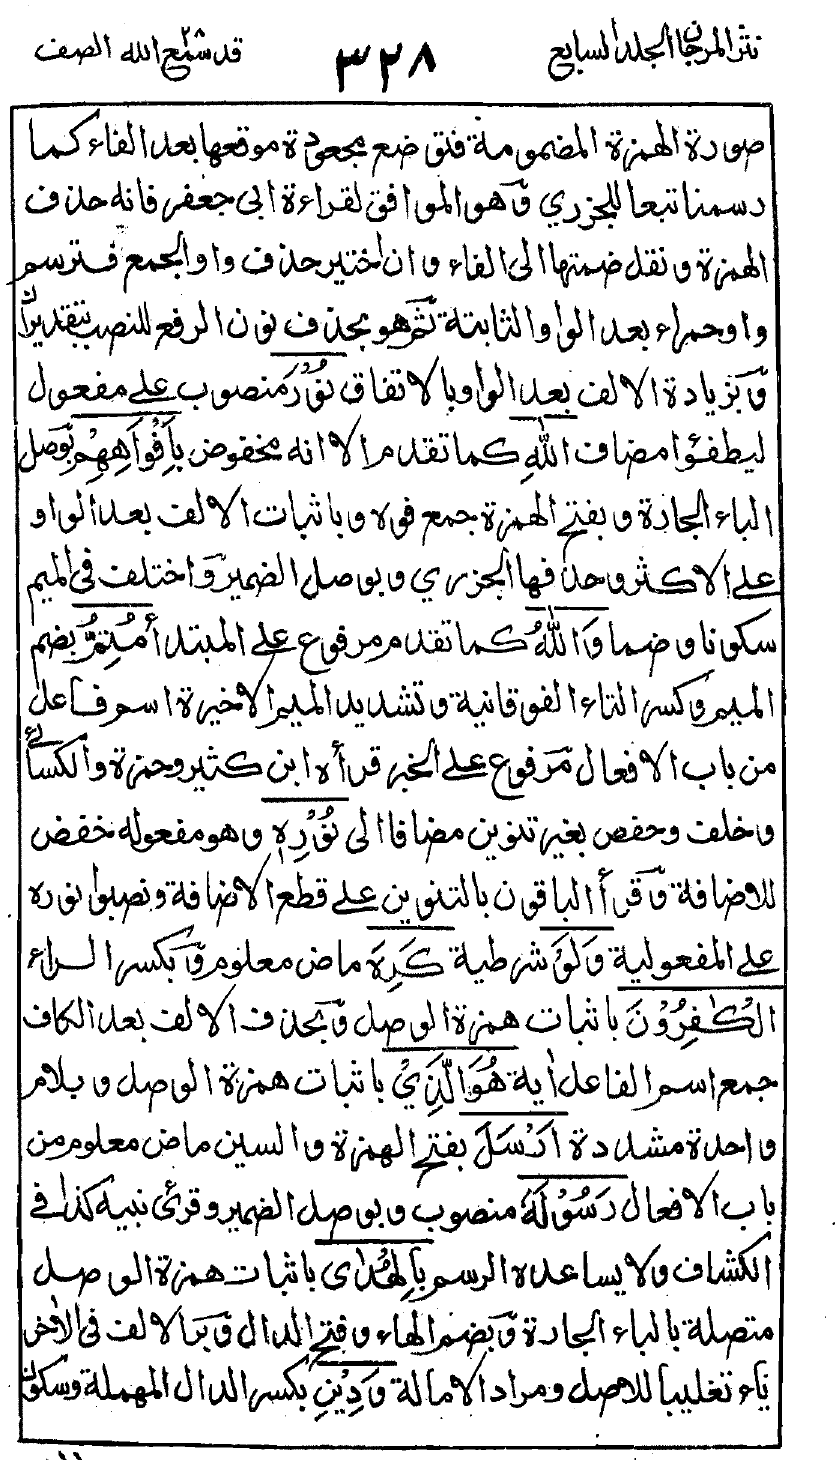 نثر المرجان المجلد السابع
٣٢٨
قد سمع الله ٢٨ الصف
صورة الهمزة المضمومة فتوضع مجعودة موقعها بعد الفاء كما
رسمنا تبعا للجزري وهو الموافق لقراءة ابى جعفر فانه حذف
الهمزة ونقل ضمتها الى الفاء وان اختير حذف واو الجمع فترسم
واو حمراء بعد الواو الثابتة ثم هو بحذف نون الرفع للنصب بتقدير ان
وبزيادة الالف بعد الواو بالاتفاق نُوْرَ منصوب على مفعول
ليطفئوا مضاف اللهِ كما تقدم الا انه مخفوض بِاَفْوَاهِهِمْ بوصل
الباء الجارة وبفتح الهمزة جمع فوه وباثبات الالف بعد الواو
على الاكثر وحذفها الجزري وبوصل الضمير واختلف فى الميم
سكونا وضما وَاللهُ كما تقدم مرفوع على المبتدأ مُتِمُّ بضم
الميم وكسر التاء الفوقانية وتشديد الميم الاخيرة اسم فاعل
من باب الافعال مرفوع على الخبر قرأه ابن كثير وحمزة والكسائي
وخلف وحفص بغير تنوين مضافا الى نُوْرِهٖ وهو مفعوله خفض
للاضافة وقرأ الباقون بالتنوين على قطع الاضافة ونصبوا نوره
على المفعولية وَلَوْ شرطية كَرِهَ ماض معلوم وبكسر الراء
الْكٰفِرُوْنَ باثبات همزة الوصل وبحذف الالف بعد الكاف
جمع اسم الفاعل اٰية هُوَ الَّذِيْ باثبات همزة الوصل وبلام
واحدة مشددة اَرْسَلَ بفتح الهمزة والسين ماض معلوم من
باب الافعال رَسُوْلَهٗ منصوب وبوصل الضمير وقرئ نبيه كذا في
الكشاف ولا يساعده الرسم بِالْهُدٰى باثبات همزة الوصل
متصلة بالباء الجارة وبضم الهاء وفتح الدال وبرالالف فى الاٰخر
ياء تغليبا للاصل ومراد الامالة وَدِيْنِ بكسر الدال المهملة وسكون